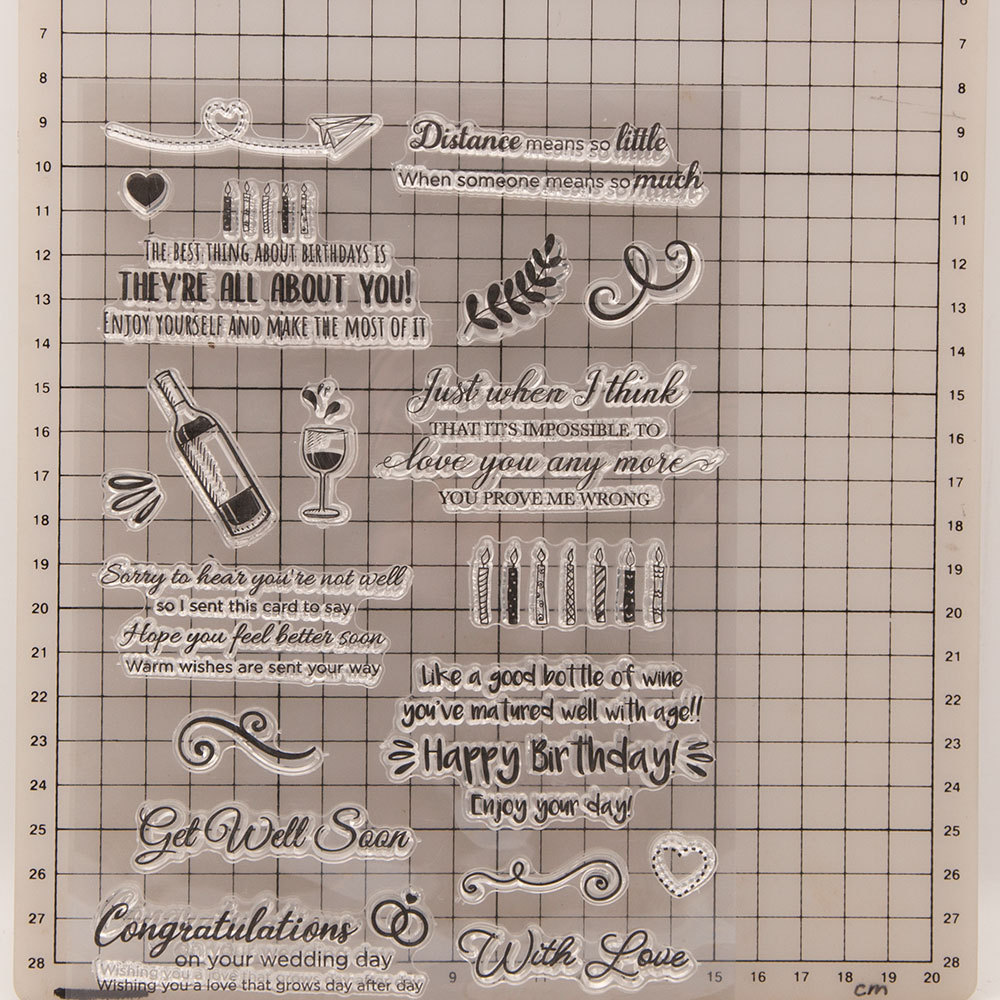 Distance means so little
When someone means so much
THE BEST THING ABOUT BIRTHDAYS IS
THEY'RE ALL ABOUT YOU!
ENJOY YOURSELF AND MAKE THE MOST OF IT
Just when I think
THAT IT'S IMPOSSIBLE TO
love you any more
YOU PROVE ME WRONG
Sorry to hear you're not well
so I sent this card to say
Hope you feel better soon
Warm wishes are sent your way
Like a good bottle of wine
you've matured well with age!!
Happy Birthday!
Enjoy your day!
Get Well Soon
Congratulations
on your wedding day
Wishing you a love that grows day after day
With Love
7
8
9
10
11
12
13
14
15
16
17
18
19
20
21
22
23
24
25
26
27
28
6
7
8
9
10
11
12
13
14
15
16
17
18
19
20
21
22
23
24
25
26
27
28
9
11
15
16
17
18
19
20
cm